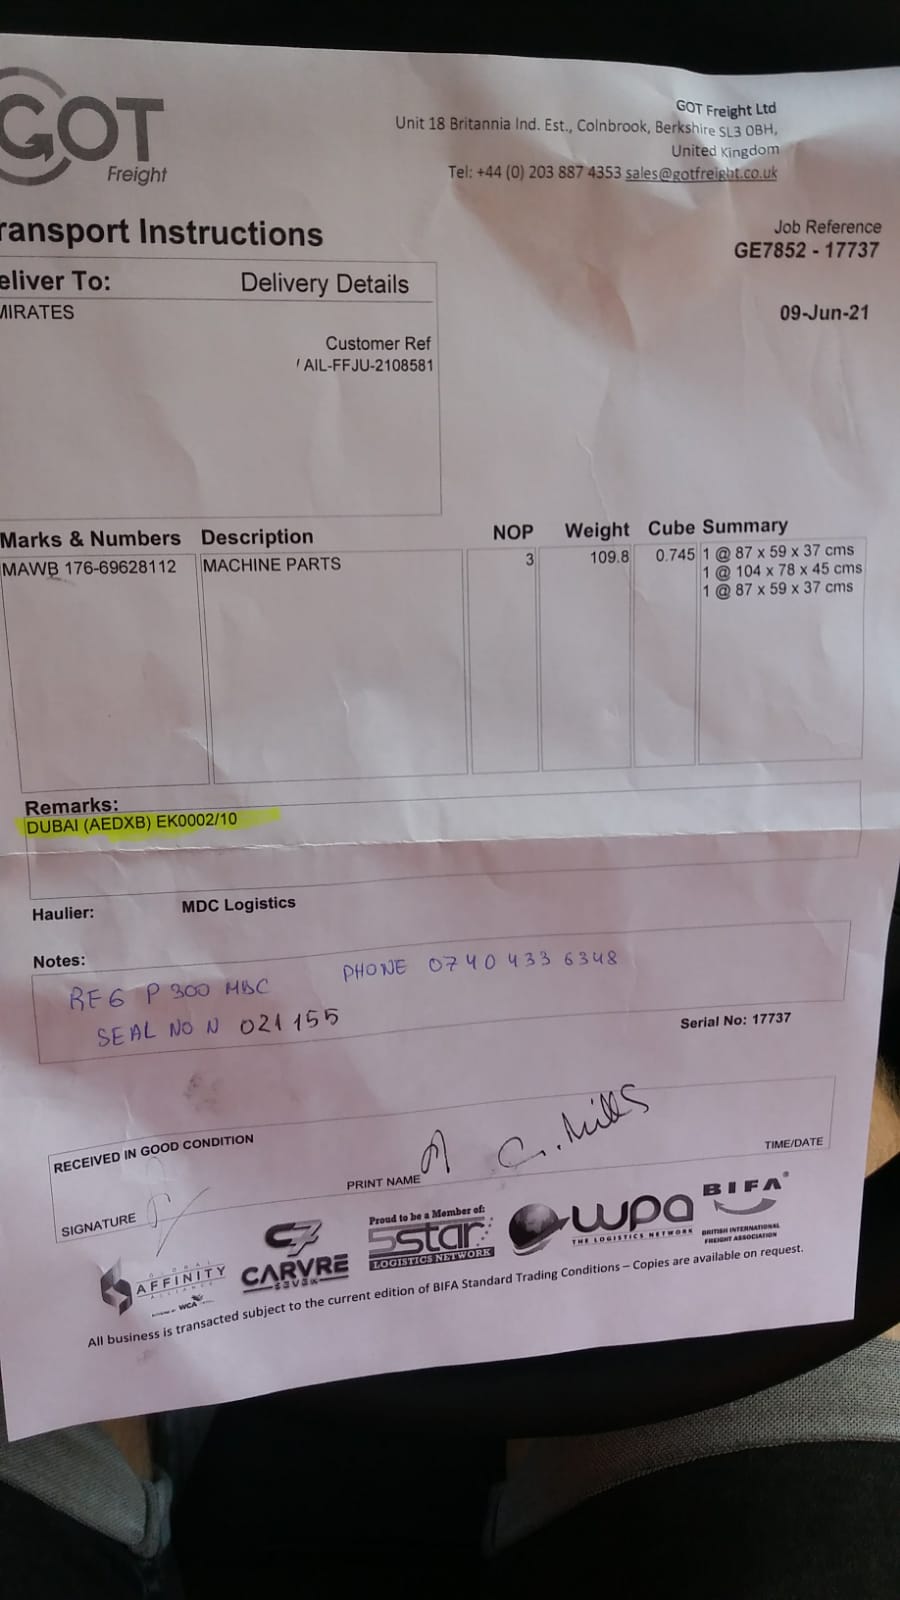 GOT
Freight
GOT Freight Ltd
Unit 18 Britannia Ind. Est., Colnbrook, Berkshire SL3 0BH,
United Kingdom
Tel: +44 (0) 203 887 4353 sales@gotfreight.co.uk
ransport Instructions
Job Reference
GE7852 - 17737
eliver To: Delivery Details
MIRATES
09-Jun-21
Customer Ref
/ AIL-FFJU-2108581
Marks & Numbers Description NOP Weight Cube Summary
MAWB 176-69628112 MACHINE PARTS 3 109.8 0.745 1 @ 87 x 59 x 37 cms
1 @ 104 x 78 x 45 cms
1 @ 87 x 59 x 37 cms
Remarks:
DUBAI (AEDXB) EK0002/10
Haulier: MDC Logistics
Notes:
REG P300 MDC PHONE 0740 433 6348
SEAL NO N 021155
Serial No: 17737
RECEIVED IN GOOD CONDITION
SIGNATURE PRINT NAME G. Mills TIME/DATE
GLOBAL
AFFINITY
ALLIANCE
WCA
C7
CARVRE
SEVEN
Proud to be a Member of:
5star
LOGISTICS NETWORK
wpa
THE LOGISTICS NETWORK
BIFA®
BRITISH INTERNATIONAL
FREIGHT ASSOCIATION
All business is transacted subject to the current edition of BIFA Standard Trading Conditions – Copies are available on request.